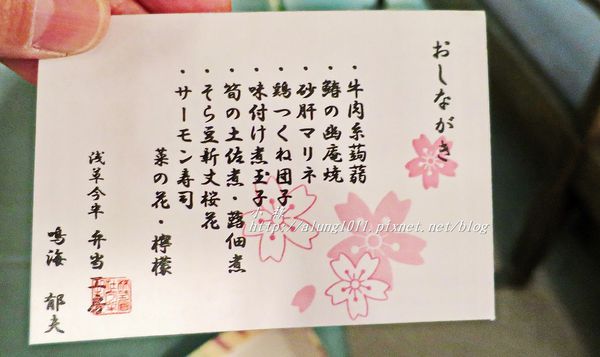 おしながき
・牛肉糸蒟蒻
・鰆の幽庵焼
・砂肝マリネ
・鶏つくね団子
・味付け煮玉子
・筍の土佐煮・蕗佃煮
・そら豆新丈桜花
・サーモン寿司
菜の花・檸檬
浅草今半 弁当工房
鳴海 郁夫
小飛
http://alung1011.pixnet.net/blog